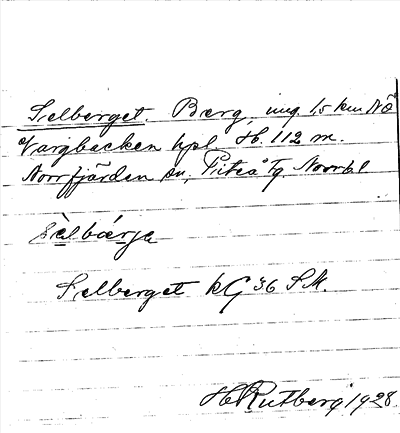 Selberget. Berg, ung. 1,5 km NÖ
Vargbacken hpl. H. 112 m.
Norrfjärden sn, Piteå tg. Norrb. l.
Sèlbǽrjə
Selberget kG 36 S.M.
H Rutberg 1928.